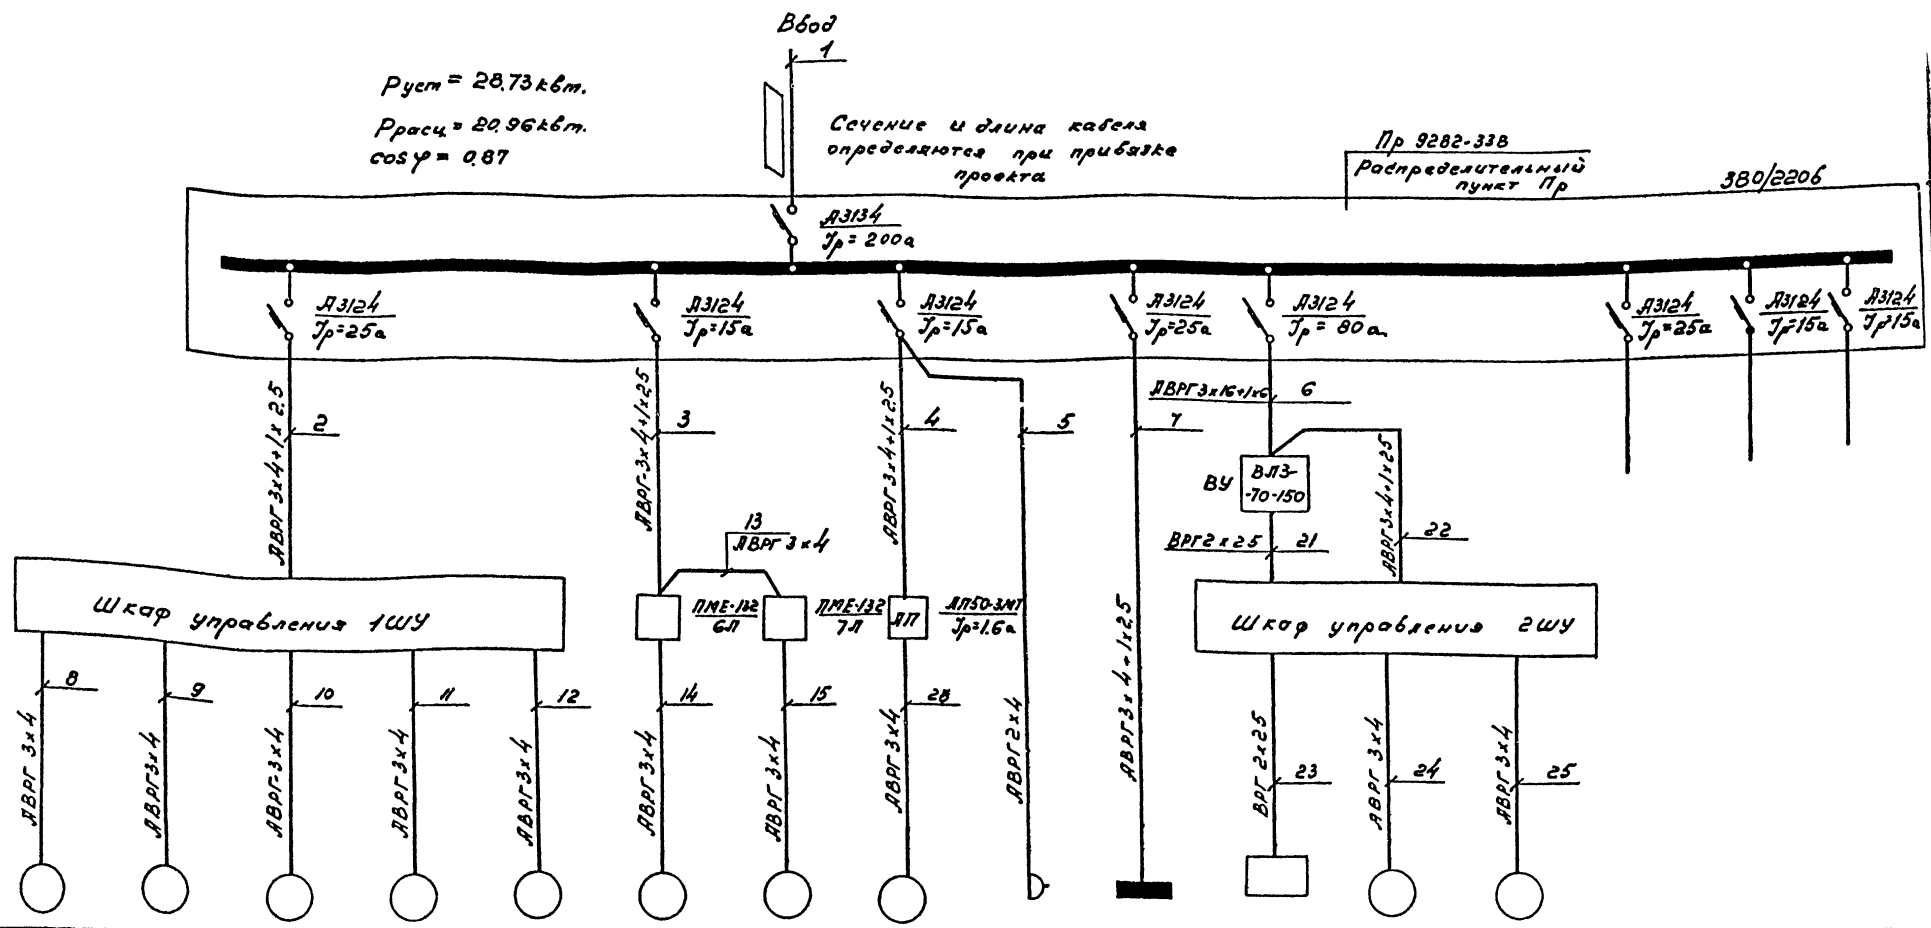 Ввод
1
Руст = 28.73 квт.
Ррасч = 20.96 квт.
cos φ = 0.87
Сечение и длина кабеля
определяются при привязке
проекта
Пр 9282-33В
Распределительный
пункт Пр
380/220в
А3134
Jр = 200а
А3124
Jр=25а
А3124
Jр=15а
А3124
Jр=15а
А3124
Jр=25а
А3124
Jр = 80а
А3124
Jр=25а
А3124
Jр=15а
А3124
Jр=15а
АВРГ 3х4+1х2.5
2
АВРГ-3х4+1х25
3
АВРГ 3х4+1х2.5
4
5
7
АВРГ3х16+1х6
6
ВУ
ВПЗ-
-70-150
АВРГ3х4+1х25
22
ВРГ2х25
21
13
АВРГ 3х4
ПМЕ-132
6П
ПМЕ-132
7П
АП
АП50-3МТ
Jр=1.6а
Шкаф управления 1ШУ
Шкаф управления 2ШУ
8
9
10
11
12
14
15
28
23
24
25
АВРГ 3х4
АВРГ3х4
АВРГ-3х4
АВРГ3х4
АВРГ3х4
АВРГ3х4
АВРГ 3х4
АВРГ3х4
АВРГ2х4
АВРГ3х4+1х2.5
ВРГ 2х25
АВРГ 3х4
АВРГ3х4